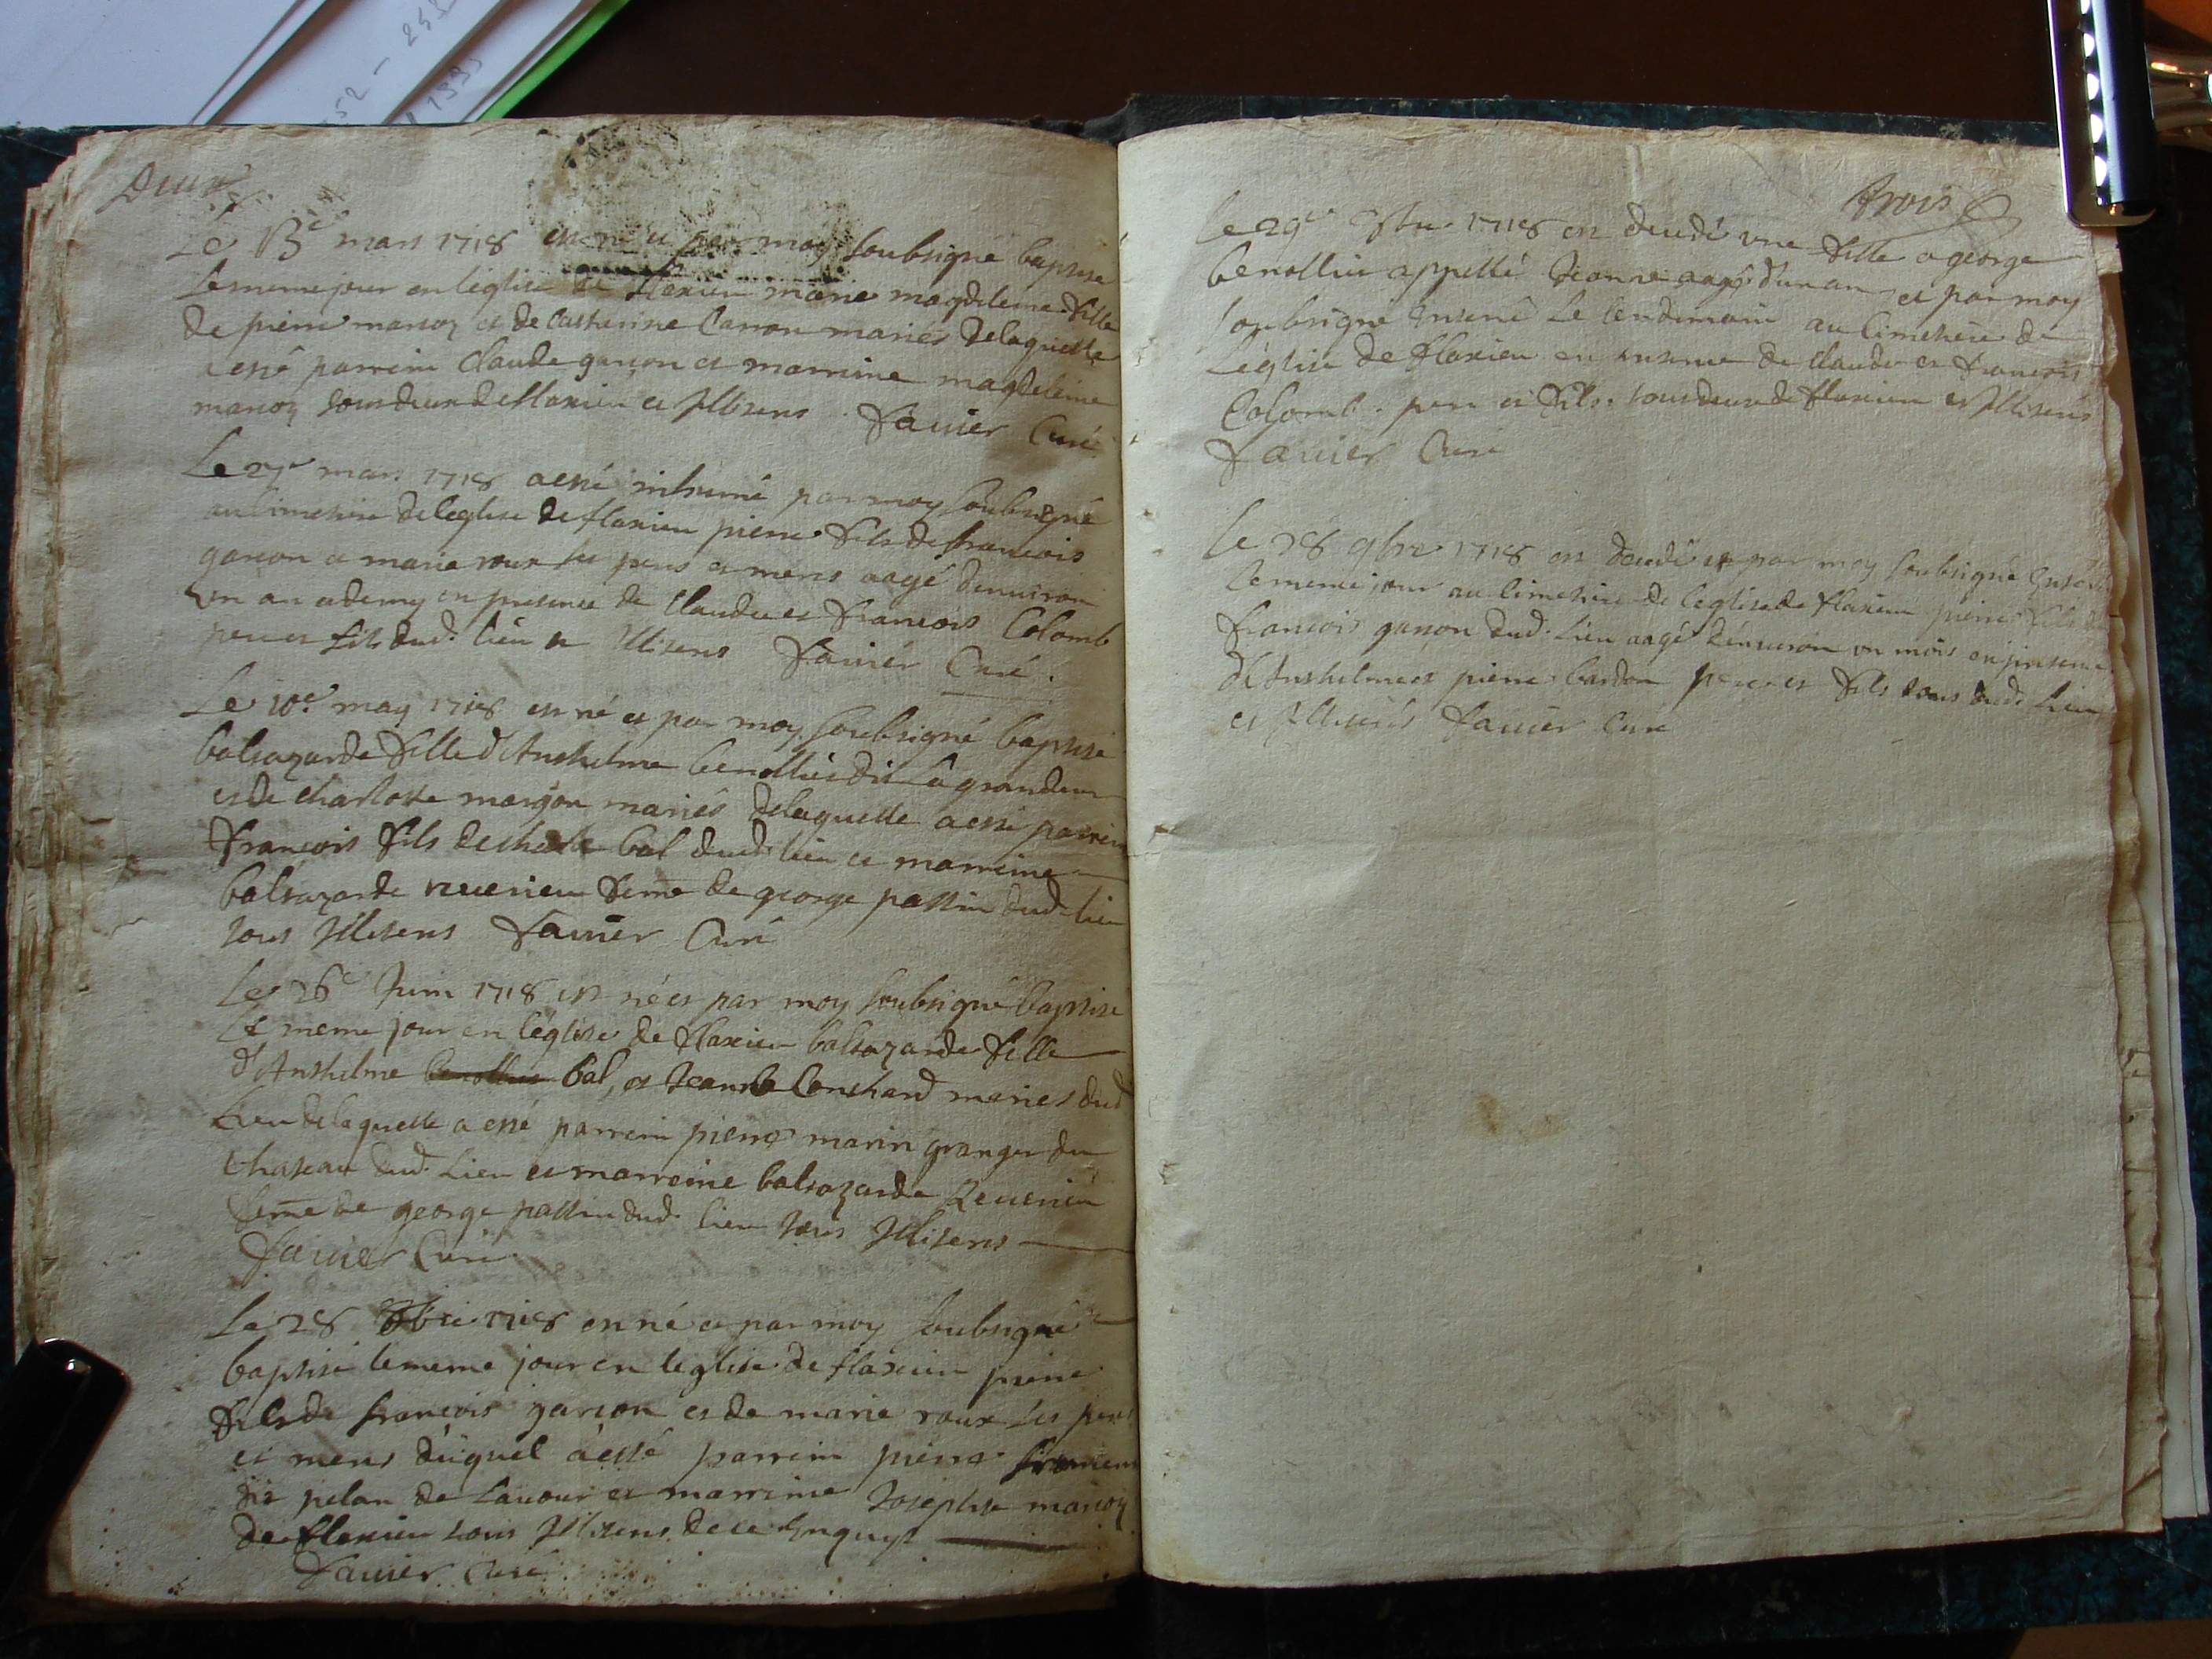 Deux
Le 13e mars 1718 est né et par moy soubsigné baptisé
le meme jour en l'église de flaxieu marie magdeleine fille
de pierre maroz et de Catherine Carron mariés de laquelle
a esté parrein Claude garson et marreine magdeleine
maroz tous deux de flaxieu et Illiterés Favier Curé
Le 27e mars 1718 a esté inhumé par moy soubsigné
au cimetiere de l'eglise de flaxieu pierre fils de francois
garson et marie roux ses peres et meres aagé d'enuiron
un an et demy en presence de Claude et francois Colomb
pere et fils dud. lieu et Illiterés Favier Curé.
Le 10e may 1718 est né et par moy soubsigné baptisé
baltazarde fille d'Anthelme benollier dit la grandeur
et de charlotte marjon mariés de laquelle a esté parrein
francois fils de bal dud. lieu et marreine
baltazarde reuerieu feme de george passin dud. lieu
tous Illiterés Favier Curé
Le 26e Juin 1718 est né et par moy soubsigné baptisé
le meme jour en l'église de flaxieu baltazarde fille
d'Anthelme benollier bal, et Jeanne Conchard mariés dud.
Lieu de laquelle a esté parrein pierre marin granger du
chateau dud. Lieu et marreine baltazarde Reuerieu
feme de george passin dud. lieu tous Illiterés
Favier Curé
Le 28 8bre 1718 est né et par moy soubsigné
baptisé le meme jour en l'eglise de flaxieu pierre
fils de francois garson et de marie roux ses peres
et meres duquel a esté parrein pierre
dit pelan de Lauour et marreine Josephte maroz
de flaxieu tous Illiterés de ce Enquys
Favier Curé
trois
Le 29e 8bre 1718 est decedé une fille a george
benollier appellé Jeanne aagé d'un an et par moy
soubsigné Enterré le lendemain au Cimetiere de
l'église de flaxieu en presence de Claude et francois
Colomb. pere et fils. tous deux de flaxieu et Illiterés
Favier Curé
Le 28 9bre 1718 est decedé et par moy soubsigné Enterré
le meme jour au cimetiere de l'eglise de flaxieu pierre fils de
francois garson dud. Lieu aagé d'enuiron un mois en presence
d'Anthelme et pierre bardon pere et fils tous dud. Lieu
et Illiterés Favier Curé